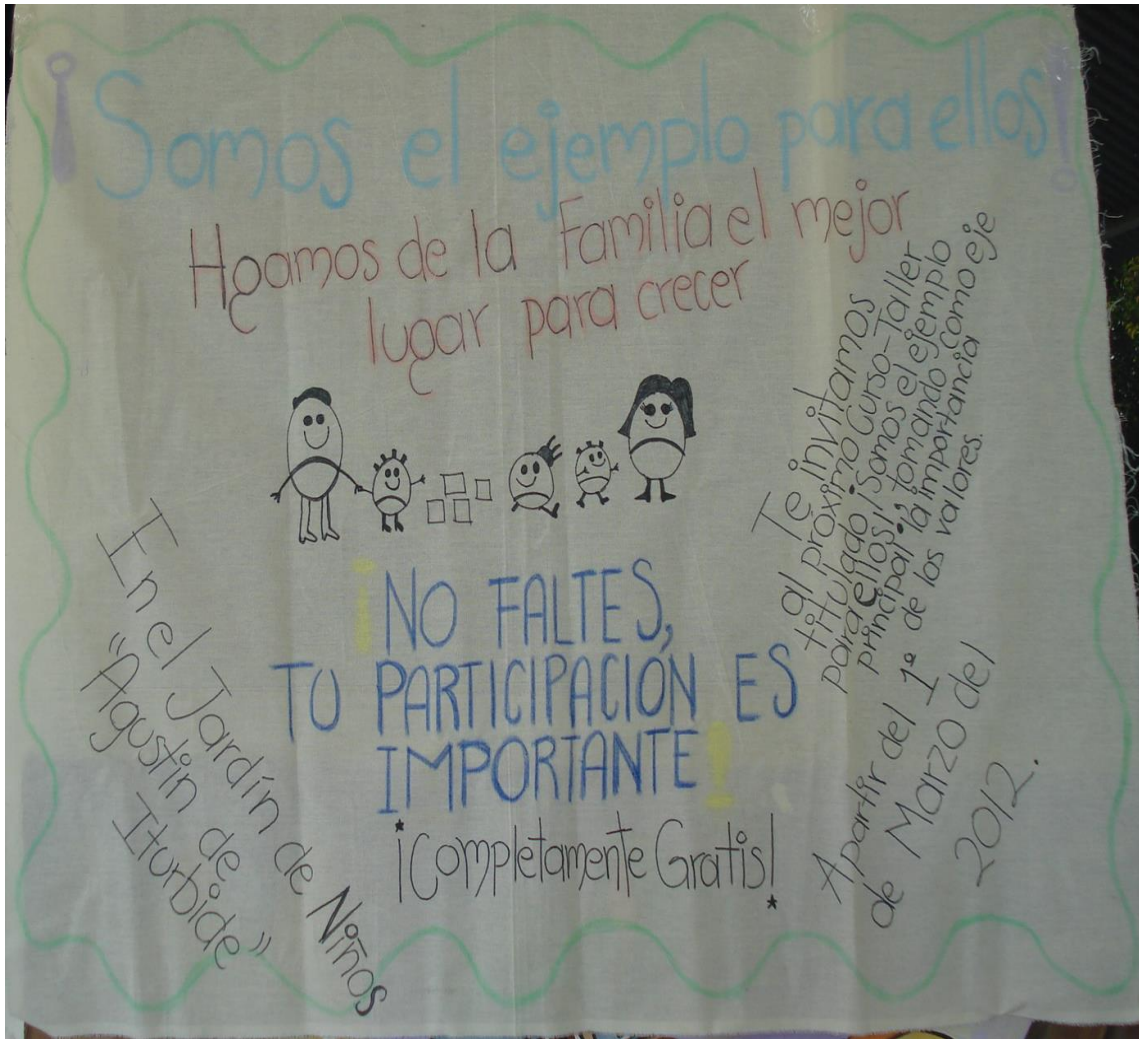 ¡Somos el ejemplo para ellos!
Hgamos de la Familia el mejor
lugar para crecer
Te invitamos
al próximo Curso-Taller
titulado ¡Somos el ejemplo
para ellos!, tomando como eje
principal la importancia
de los valores.
Apartir del 1º
de Marzo del
2012.
¡NO FALTES,
TU PARTICIPACIÓN ES
IMPORTANTE!
¡Completamente Gratis!
En el Jardín de Niños
"Agustín de
Iturbide"